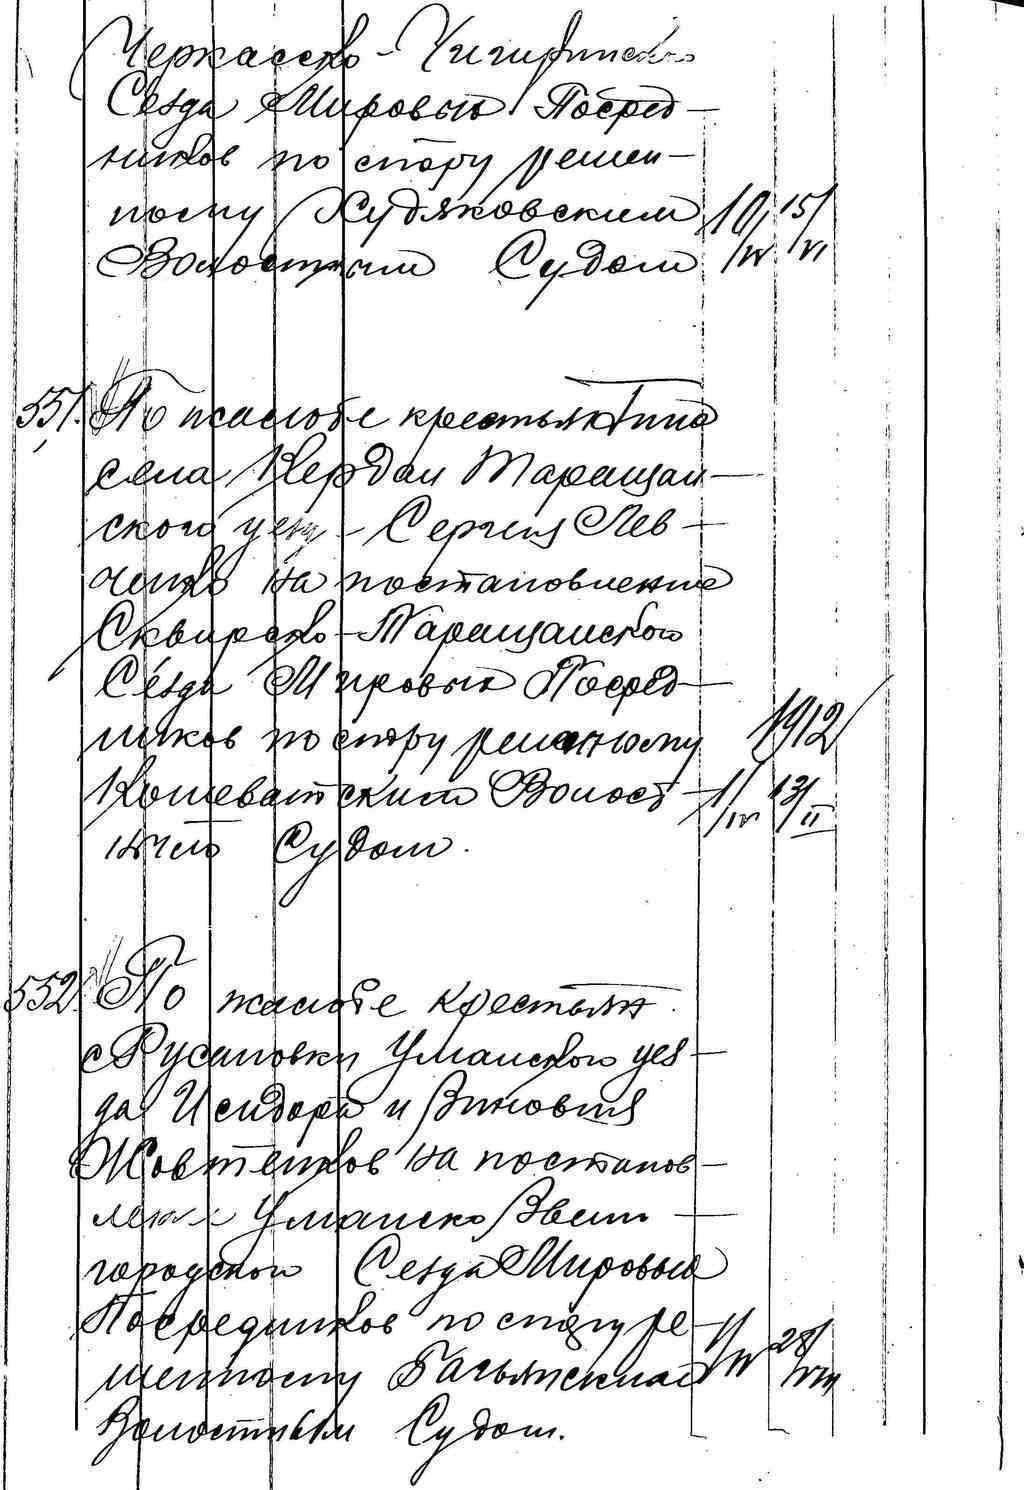 Черкасско-Чигиринского
Сезда Мировых Посред-
ников по спору решен-
ному Худяковским 10/IV 15/VI
Волостным Судом
551. По жалобе крестьянина
села Кердан Таращан-
ского уезд- Сергия Лев-
ченко на постановление
Сквирско-Таращанского
Сезда Мировых Посред-
ников по спору решенному 1912
Кошеватским Волост- 1/IV 13/II
ным Судом.
552. По жалобе крестьян
с Русаловки Уманского уез-
да Исидора и Зиновия
Жовтенков на постанов-
ление Уманско Звени-
городского Сезда Мировых
Посредников по спору ре- 1/IV 28/VIII
шенному
Волостным Судом.